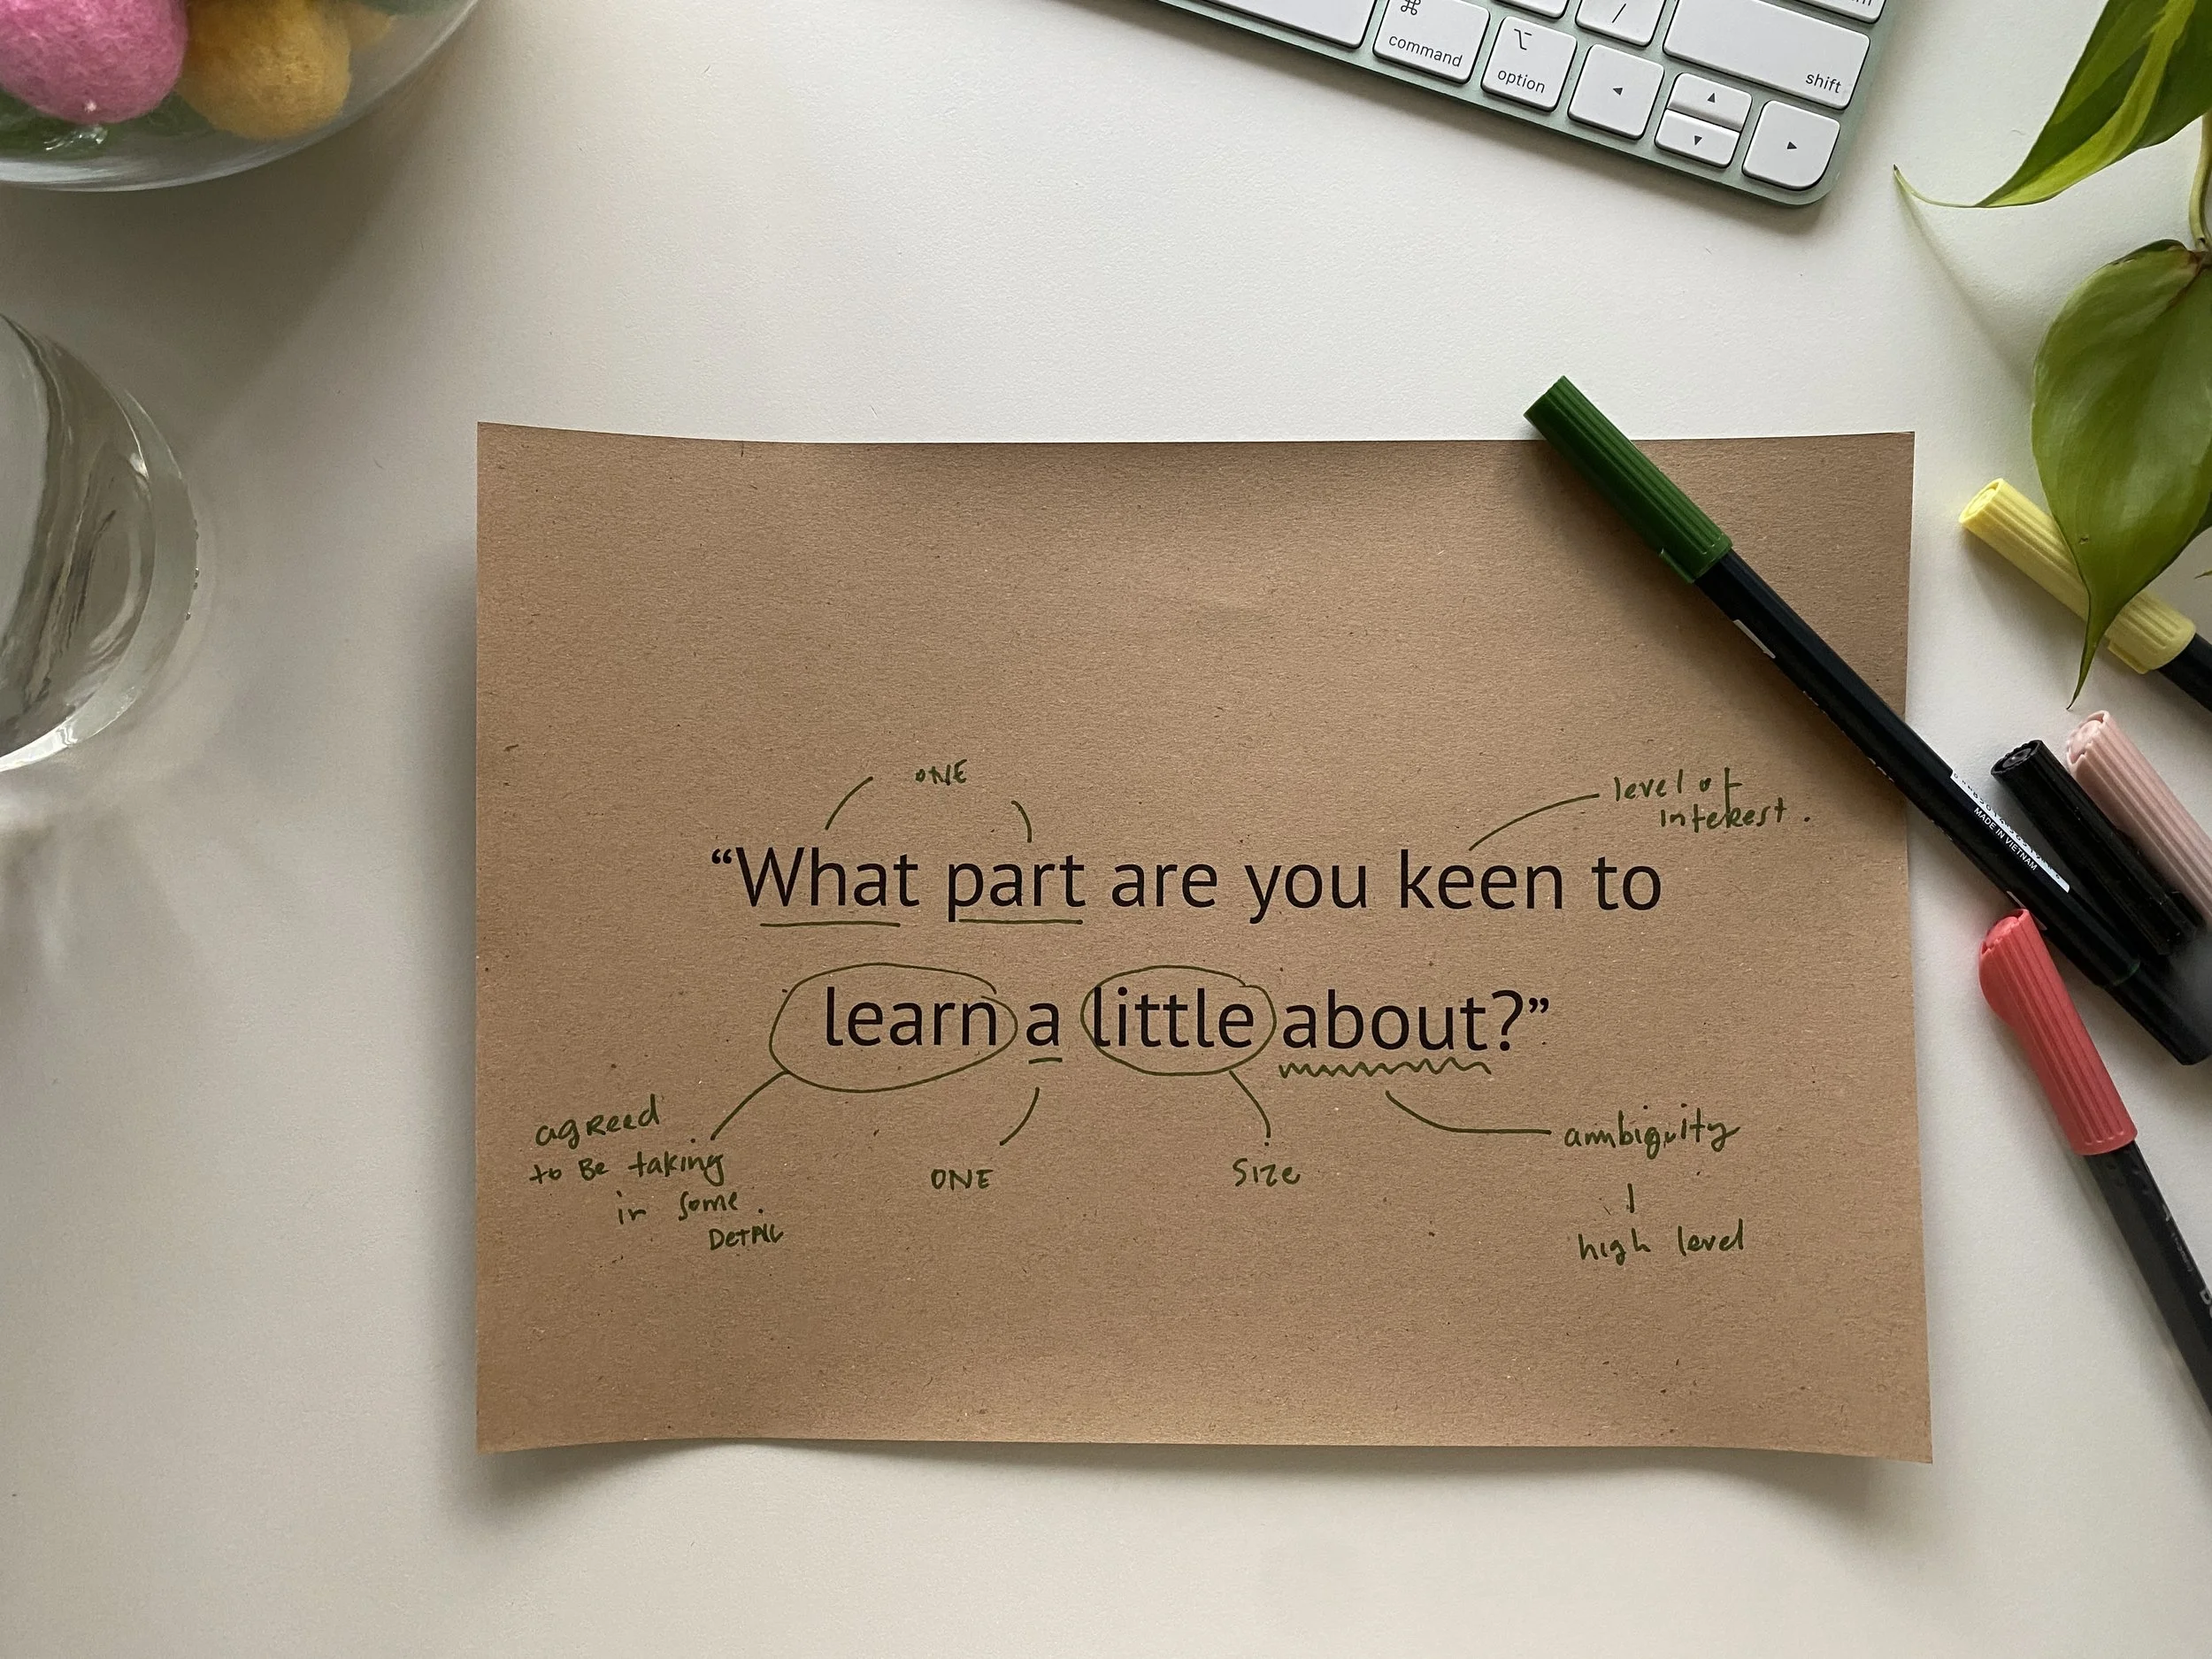 ⌘
command
⌥
option
/
shift
◂
▴
▾
▸
ONE
level of
interest.
“What part are you keen to
learn a little about?”
agreed
to Be taking
in some.
DetAIL
ONE
Size
ambiguity
high level
MADE IN VIETNAM